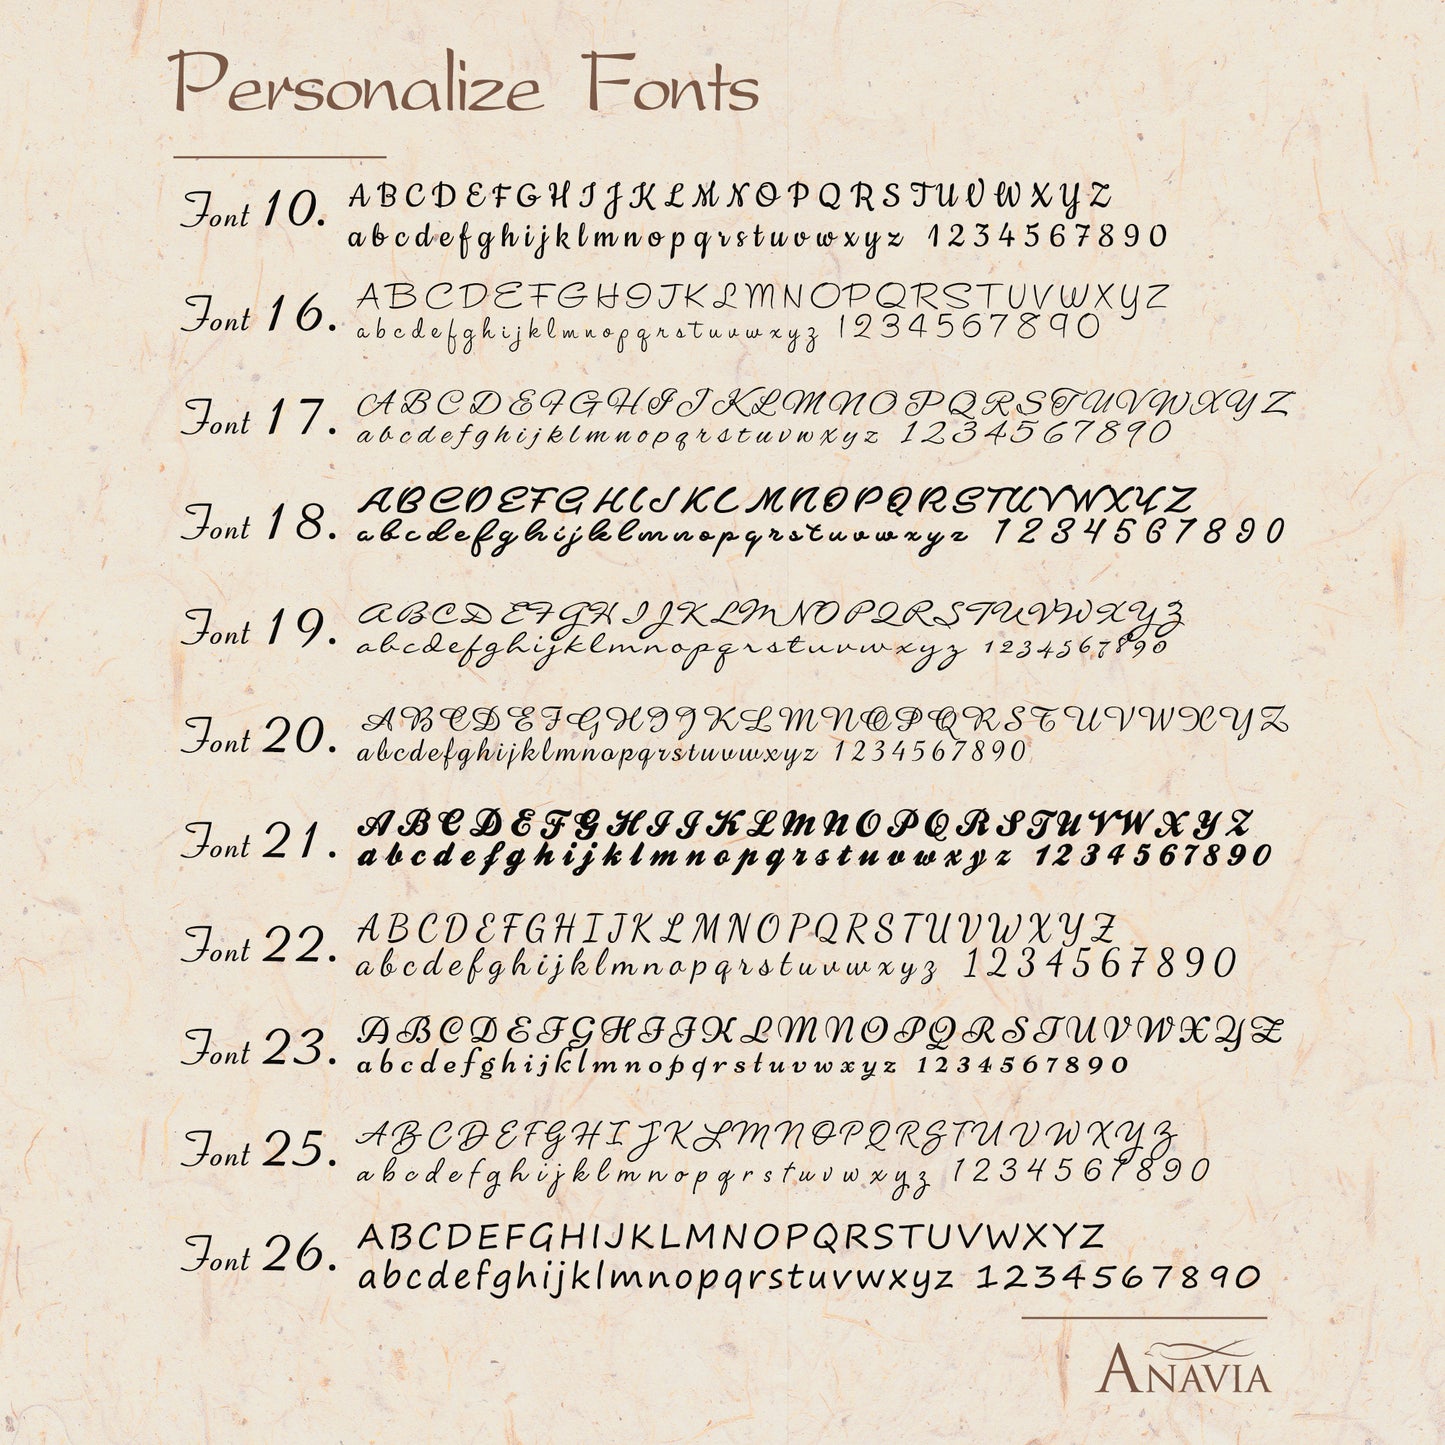 Personalize Fonts
Font 10. A B C D E F G H I J K L M N O P Q R S T U V W X Y Z
a b c d e f g h i j k l m n o p q r s t u v w x y z 1 2 3 4 5 6 7 8 9 0
Font 16. A B C D E F G H I J K L M N O P Q R S T U V W X Y Z
a b c d e f g h i j k l m n o p q r s t u v w x y z 1 2 3 4 5 6 7 8 9 0
Font 17. A B C D E F G H I J K L M N O P Q R S T U V W X Y Z
a b c d e f g h i j k l m n o p q r s t u v w x y z 1 2 3 4 5 6 7 8 9 0
Font 18. A B C D E F G H I J K L M N O P Q R S T U V W X Y Z
a b c d e f g h i j k l m n o p q r s t u v w x y z 1 2 3 4 5 6 7 8 9 0
Font 19. A B C D E F G H I J K L M N O P Q R S T U V W X Y Z
a b c d e f g h i j k l m n o p q r s t u v w x y z 1 2 3 4 5 6 7 8 9 0
Font 20. A B C D E F G H I J K L M N O P Q R S T U V W X Y Z
a b c d e f g h i j k l m n o p q r s t u v w x y z 1 2 3 4 5 6 7 8 9 0
Font 21. A B C D E F G H I J K L M N O P Q R S T U V W X Y Z
a b c d e f g h i j k l m n o p q r s t u v w x y z 1 2 3 4 5 6 7 8 9 0
Font 22. A B C D E F G H I J K L M N O P Q R S T U V W X Y Z
a b c d e f g h i j k l m n o p q r s t u v w x y z 1 2 3 4 5 6 7 8 9 0
Font 23. A B C D E F G H I J K L M N O P Q R S T U V W X Y Z
a b c d e f g h i j k l m n o p q r s t u v w x y z 1 2 3 4 5 6 7 8 9 0
Font 25. A B C D E F G H I J K L M N O P Q R S T U V W X Y Z
a b c d e f g h i j k l m n o p q r s t u v w x y z 1 2 3 4 5 6 7 8 9 0
Font 26. ABCDEFGHIJKLMNOPQRSTUVWXYZ
abcdefghijklmnopqrstuvwxyz 1234567890
ANAVIA